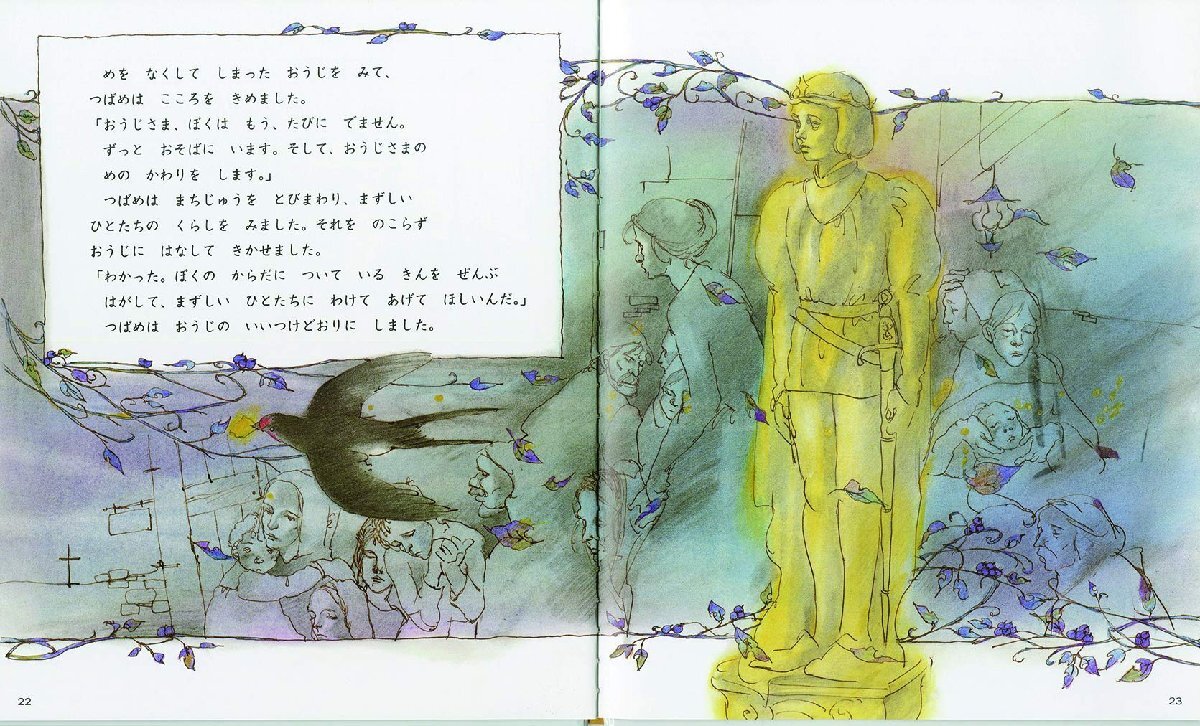 めを なくして しまった おうじを みて、
つばめは こころを きめました。
「おうじさま、ぼくは もう、たびに でません。
ずっと おそばに います。そして、おうじさまの
めの かわりを します。」
つばめは まちじゅうを とびまわり、まずしい
ひとたちの くらしを みました。それを のこらず
おうじに はなして きかせました。
「わかった。ぼくの からだに ついて いる きんを ぜんぶ
はがして、まずしい ひとたちに わけて あげて ほしいんだ。」
つばめは おうじの いいつけどおりに しました。
22
23